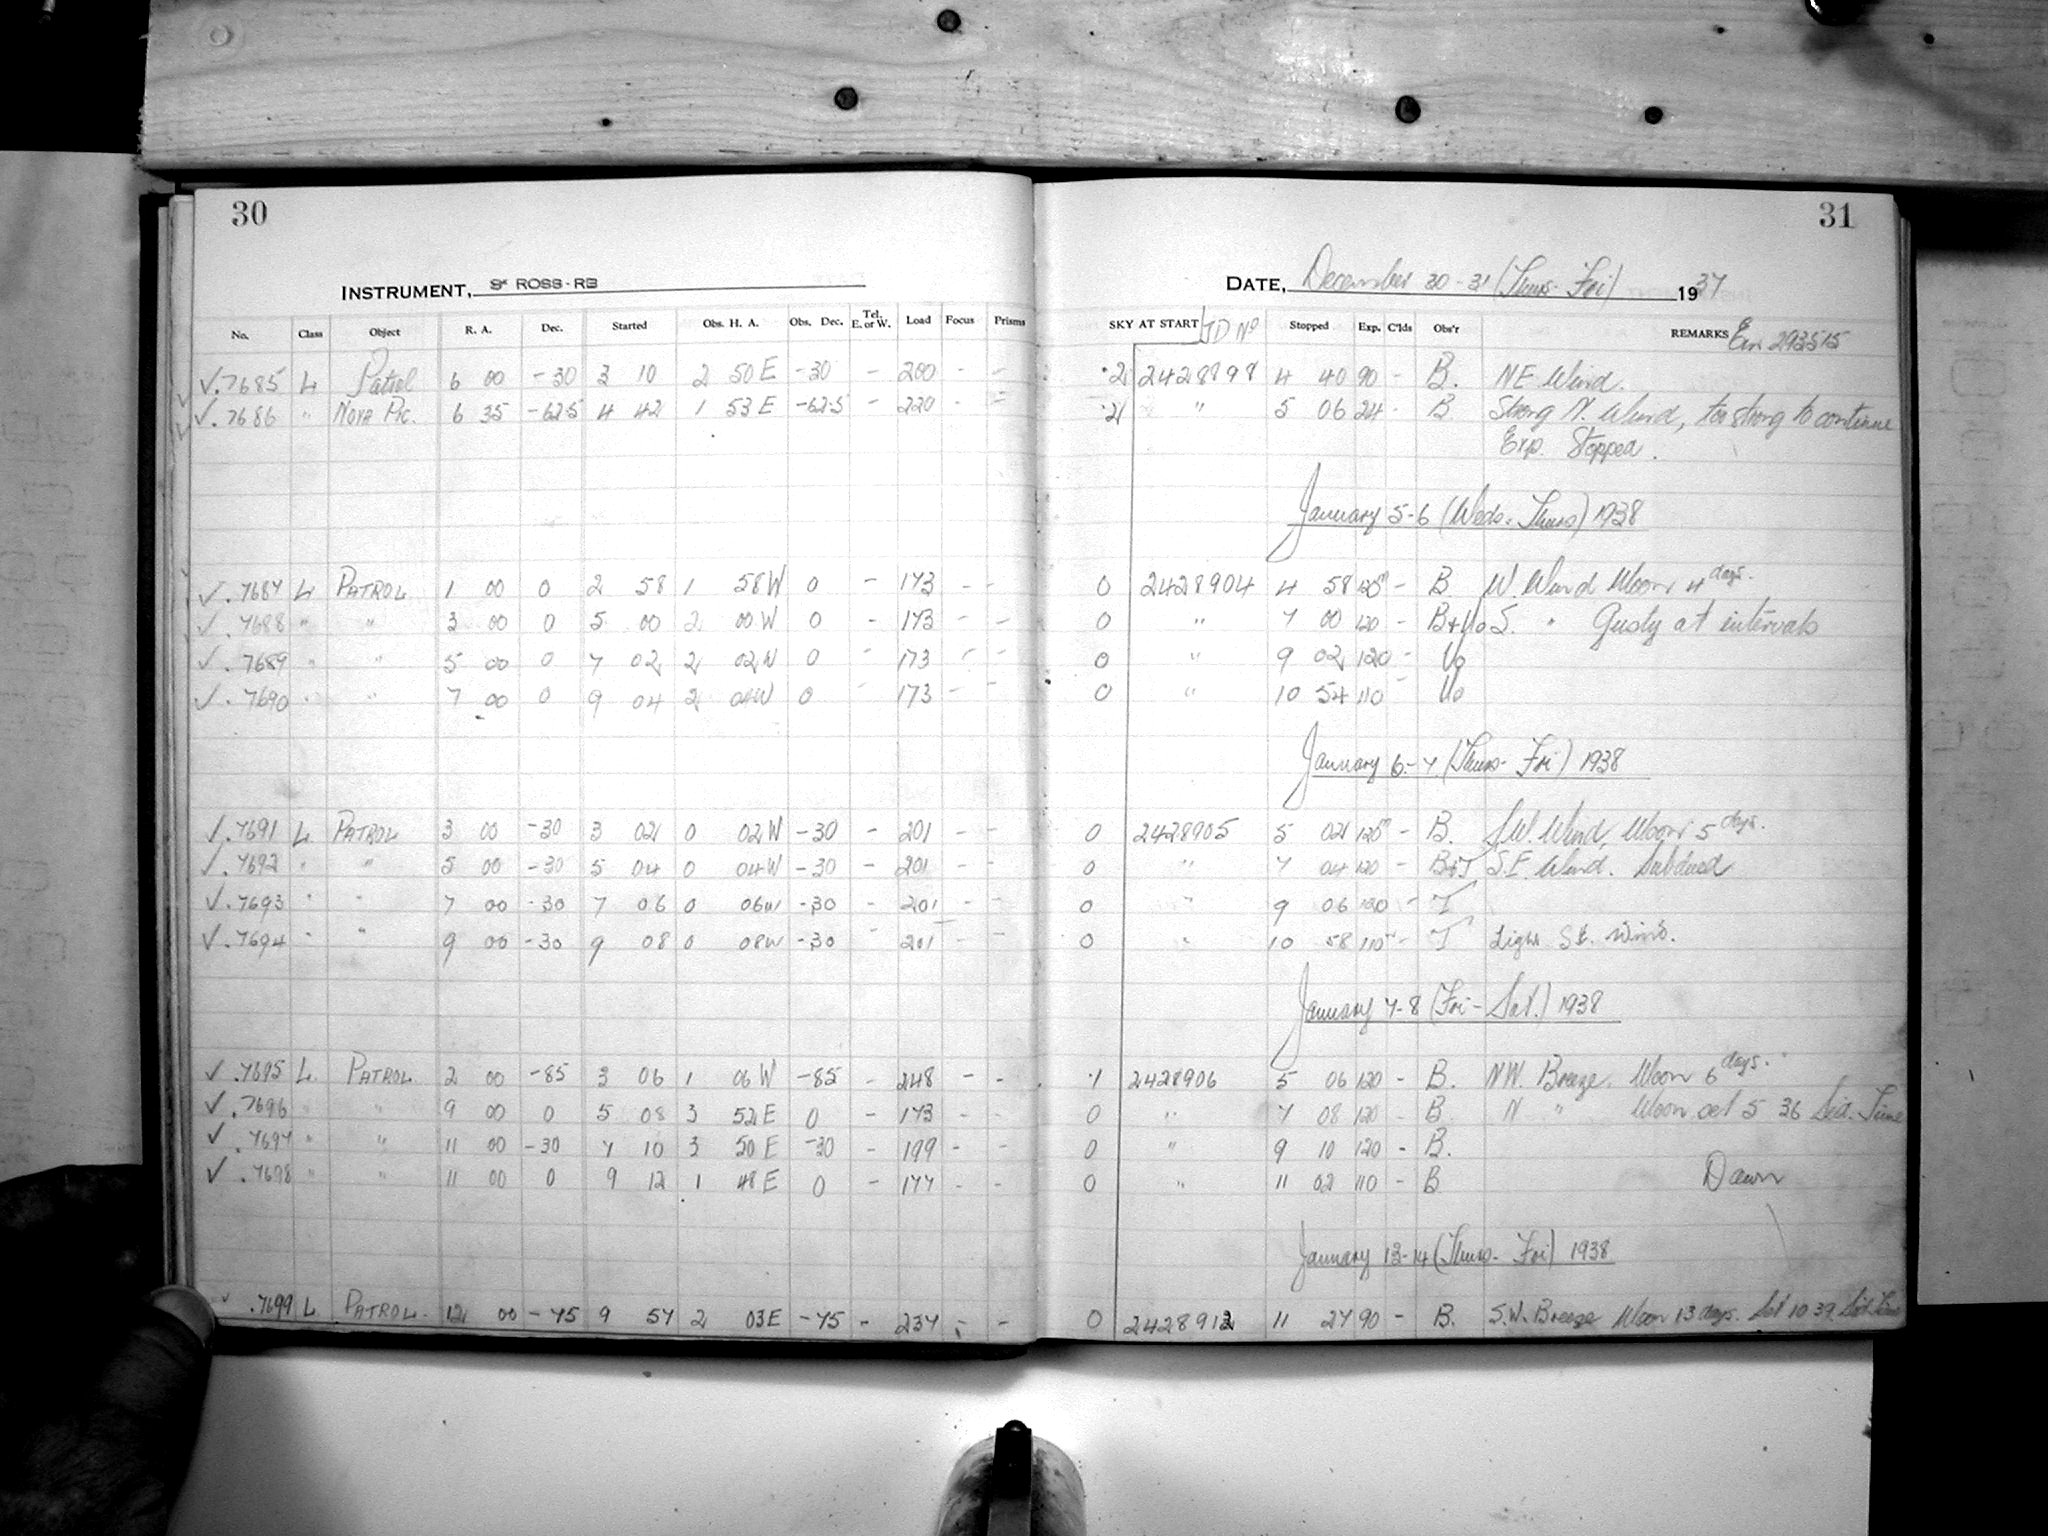 30
31
INSTRUMENT, 3" ROSS-RB
DATE, December 30-31 (Thurs-Fri) 1937
No. Class Object R. A. Dec. Started Obs. H. A. Obs. Dec. Tel. E. or W. Load Focus Prisms SKY AT START JD No Stopped Exp. C'lds Obs'r REMARKS
✓.7685 L Patrol 6 00 -30 3 10 2 50 E -30 - 200 - - .2 2428898 4 40 90 - B. NE Wind.
✓.7686 " NOVA PIC. 6 35 -62.5 4 42 1 53 E -62.5 - 220 - = .2 " 5 06 24 - B. Strong N. Wind, too strong to continue
Exp. Stopped.
January 5-6 (Weds-Thurs) 1938
✓.7687 L PATROL 1 00 0 2 58 1 58 W 0 - 173 - - 0 2428904 4 58 120m - B W. Wind Moon 4 days.
✓.7688 " " 3 00 0 5 00 2 00 W 0 - 173 - - 0 " 7 00 120 - S. " Gusty at intervals
✓.7689 " " 5 00 0 7 02 2 02 W 0 - 173 - - 0 " 9 02 120 -
✓.7690 " " 7 00 0 9 04 2 04 W 0 - 173 - - 0 " 10 54 110 -
January 6-7 (Thurs-Fri) 1938
✓.7691 L PATROL 3 00 -30 3 02 0 02 W -30 - 201 - - 0 2428905 5 02 120m - B. S.W. Wind, Moon 5 days.
✓.7692 " " 5 00 -30 5 04 0 04 W -30 - 201 - - 0 " 7 04 120 - B&J S.E. Wind. Subdued
✓.7693 " " 7 00 -30 7 06 0 06 W -30 - 201 - - 0 " 9 06 120 - J
✓.7694 " " 9 00 -30 9 08 0 08 W -30 - 201 - - 0 " 10 58 110m - J Light SE. Wind.
January 7-8 (Fri-Sat.) 1938
✓.7695 L. PATROL 2 00 -85 3 06 1 06 W -85 - 248 - - .1 2428906 5 06 120 - B. NW. Breeze. Moon 6 days.
✓.7696 " 9 00 0 5 08 3 52 E 0 - 173 - - 0 " 7 08 120 - B. N " Moon set 5 36 Sid. Time
✓.7697 " " 11 00 -30 7 10 3 50 E -30 - 199 - - 0 " 9 10 120 - B.
✓.7698 " " 11 00 0 9 12 1 48 E 0 - 177 - - 0 " 11 02 110 - B Dawn
January 13-14 (Thurs-Fri) 1938
✓.7699 L PATROL. 12 00 -75 9 57 2 03 E -75 - 237 - - 0 2428912 11 27 90 - B. S.W. Breeze Moon 13 days. Set 10 39 Sid. Time